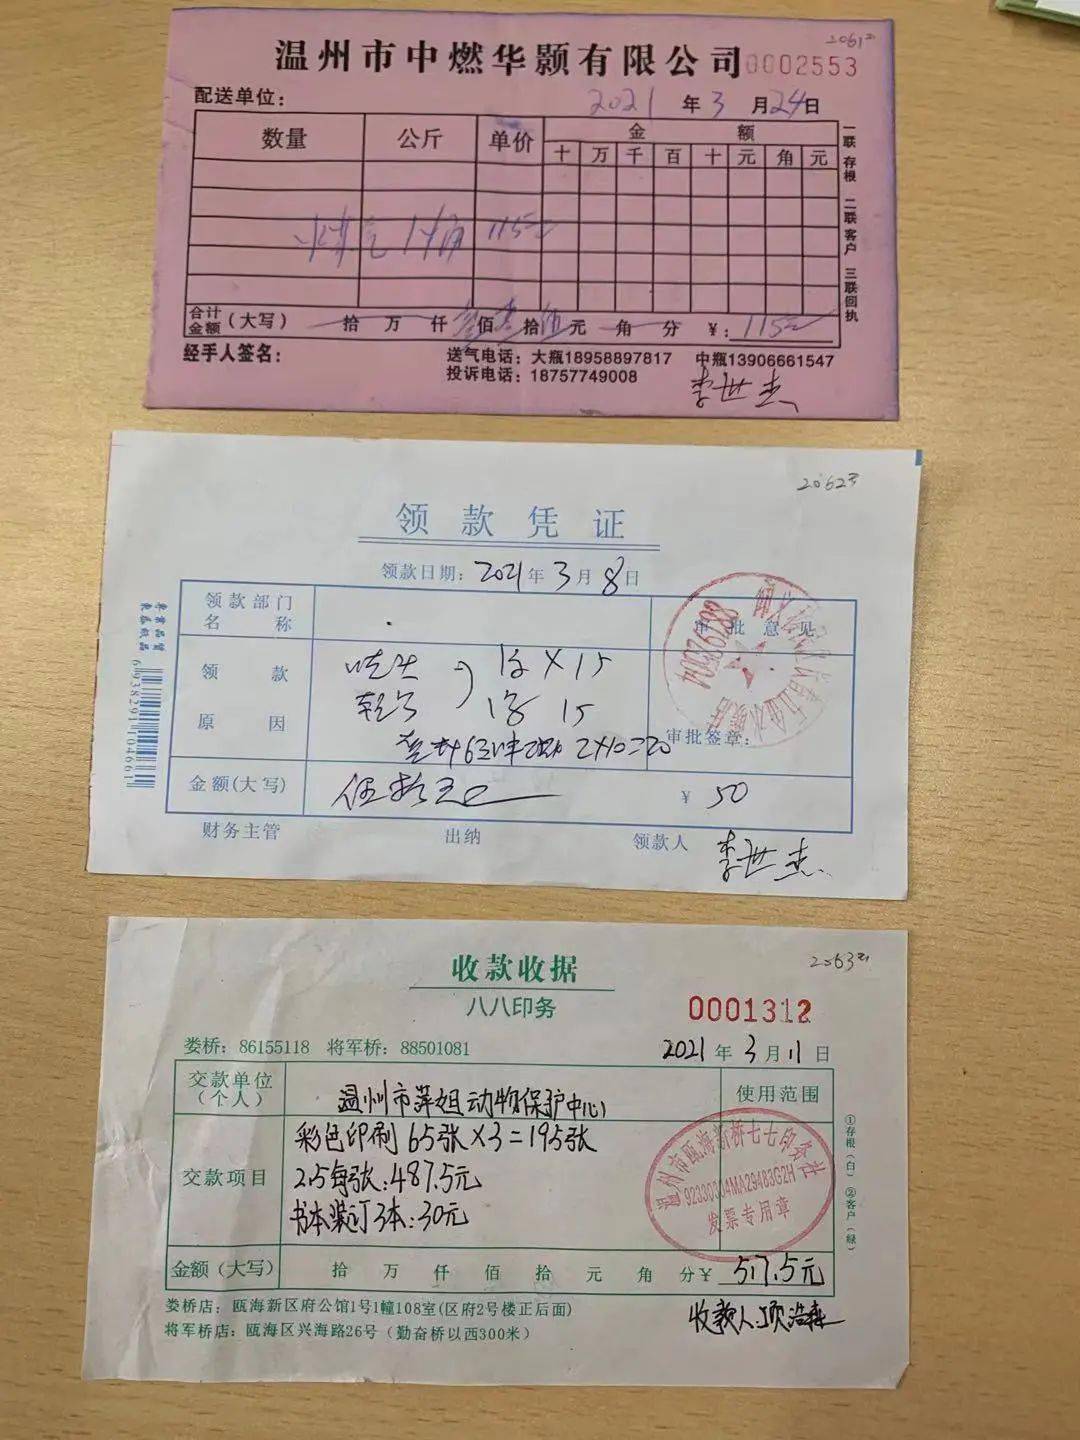 温州市中燃华颢有限公司 0002553
配送单位：
2021 年 3 月 24 日
数量 公斤 单价 金额
十 万 千 百 十 元 角 元
煤气 115元
合计金额（大写） 拾 万 仟 壹 佰 壹 拾 伍 元 角 分 ¥： 115元
经手人签名：
送气电话：大瓶18958897817 中瓶13906661547
投诉电话：18757749008
李世杰
一联存根 二联客户 三联回执
领款凭证
领款日期：2021 年 3 月 8 日
领款部门名称
审批意见
领款原因
15
15
2×10=20
审批签章：
金额(大写) 伍拾元 ¥ 50
财务主管 出纳 领款人 李世杰
6 938291 104661
收款收据
八八印务
0001312
娄桥：86155118 将军桥：88501081
2021 年 3 月 11 日
交款单位（个人） 温州市萍姐动物保护中心 使用范围
交款项目
彩色印刷 65张×3=195张
2.5每张：487.5元
书本装订3本：30元
温州市瓯海新桥七七印务社
92330304MA29483G2H
发票专用章
金额（大写） 拾 万 仟 佰 拾 元 角 分 ¥ 517.5元
娄桥店：瓯海新区府公馆1号1幢108室(区府2号楼正后面)
将军桥店：瓯海区兴海路26号（勤奋桥以西300米）
收款人：项浩森
①存根（白） ②客户（绿）